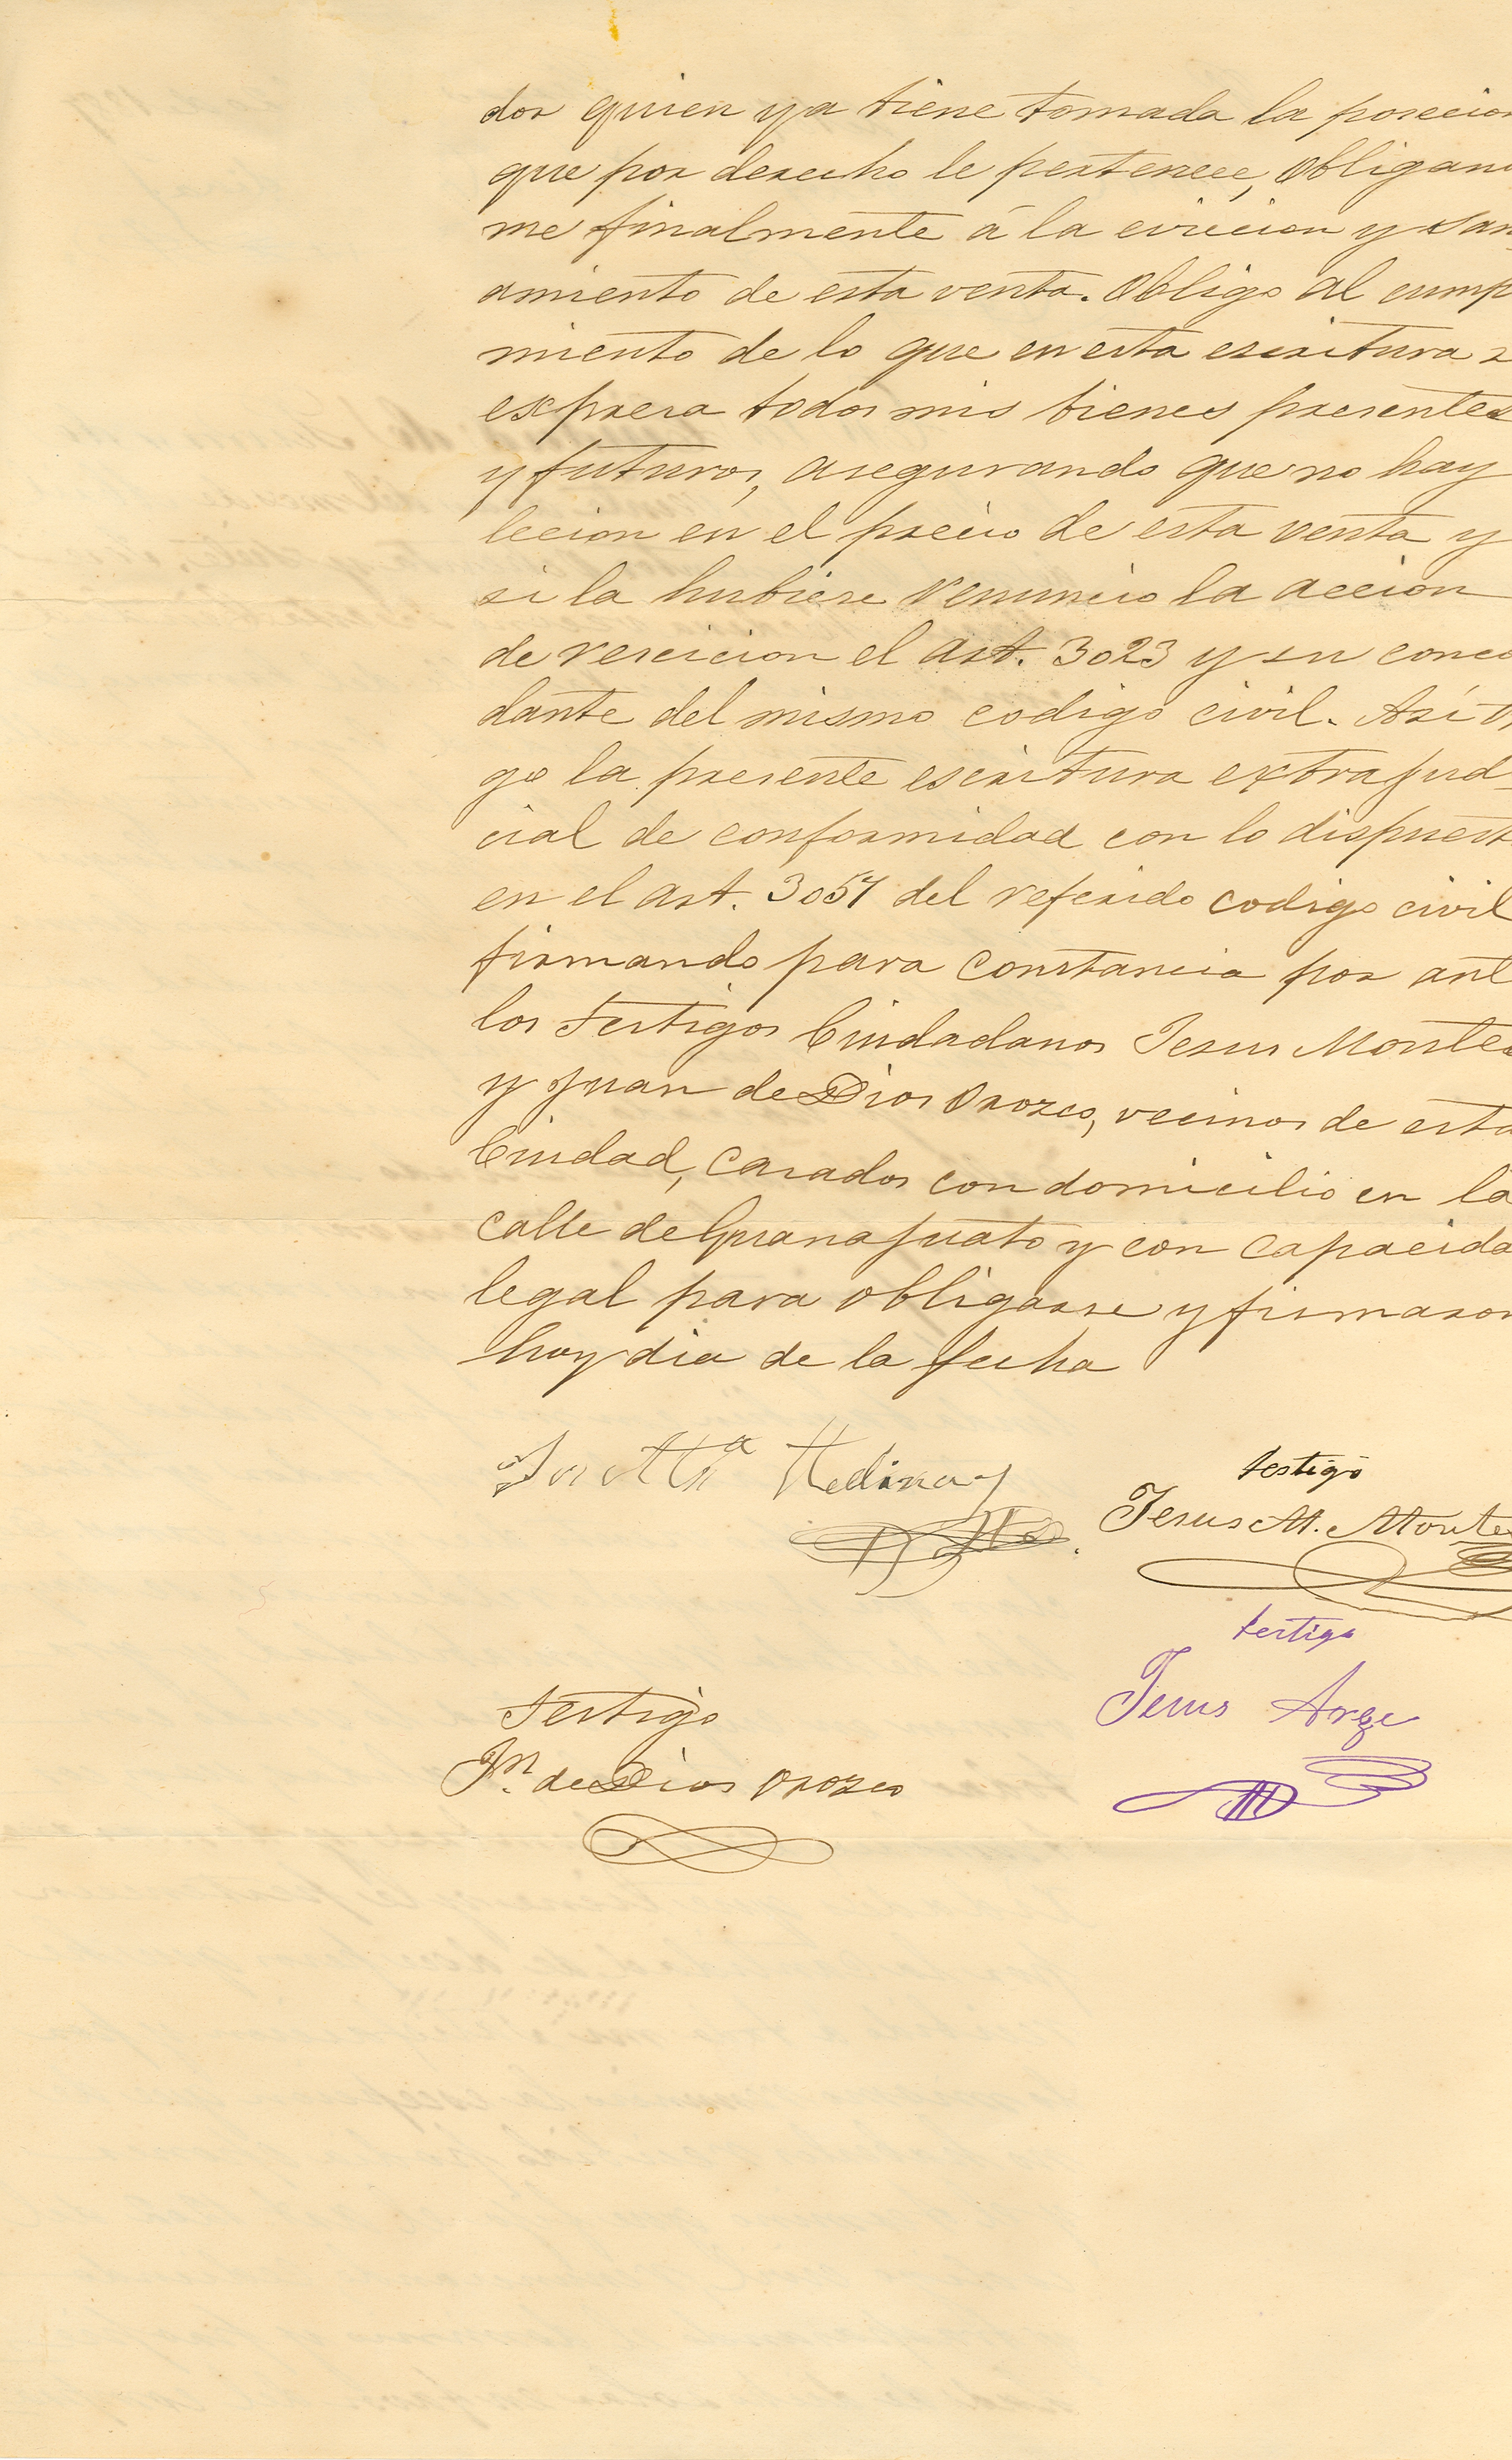 dor quien ya tiene tomada la posecion
que por derecho le pertenece, obligand
me finalmente á la eviccion y san
amiento de esta venta. Obligo al cump
miento de lo que en esta escritura s
expresa todos mis bienes presentes
y futuros, asegurando que no hay
lecion en el precio de esta venta y
si la hubiere renuncio la accion
de rescicion el art. 3023 y su conco
dante del mismo codigo civil. Así ot
go la presente escritura extrajud
cial de conformidad con lo dispuest
en el art. 3057 del referido codigo civil
firmando para constancia por ant
los testigos Ciudadanos Jesus Montes
y Juan de Dios Orozco, vecinos de esta
Ciudad, casados con domicilio en la
calle de Guanajuato y con capacida
legal para obligarse y firmaron
hoy dia de la fecha
Jos Ma Medina
testigo
Jesus M. Monte
testigo
Jesus Arze
Testigo
Jn. de Dios Orozco